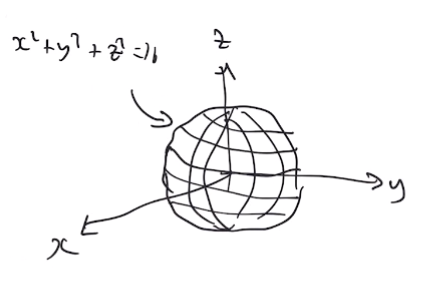 x² + y² + z² = 1
z
y
x